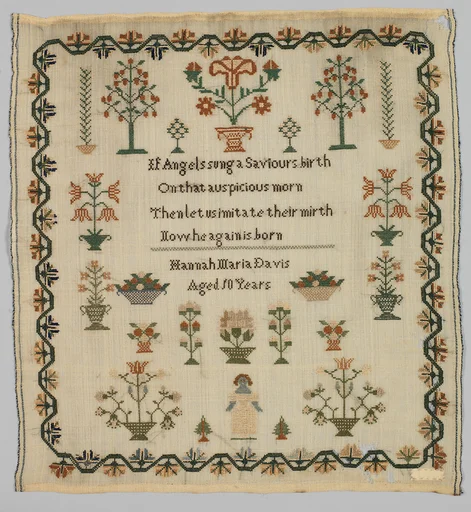 If Angels sung a Saviours birth
On that auspicious morn
Then let us imitate their mirth
Now he again is born
Hannah Maria Davis
Aged 10 Years